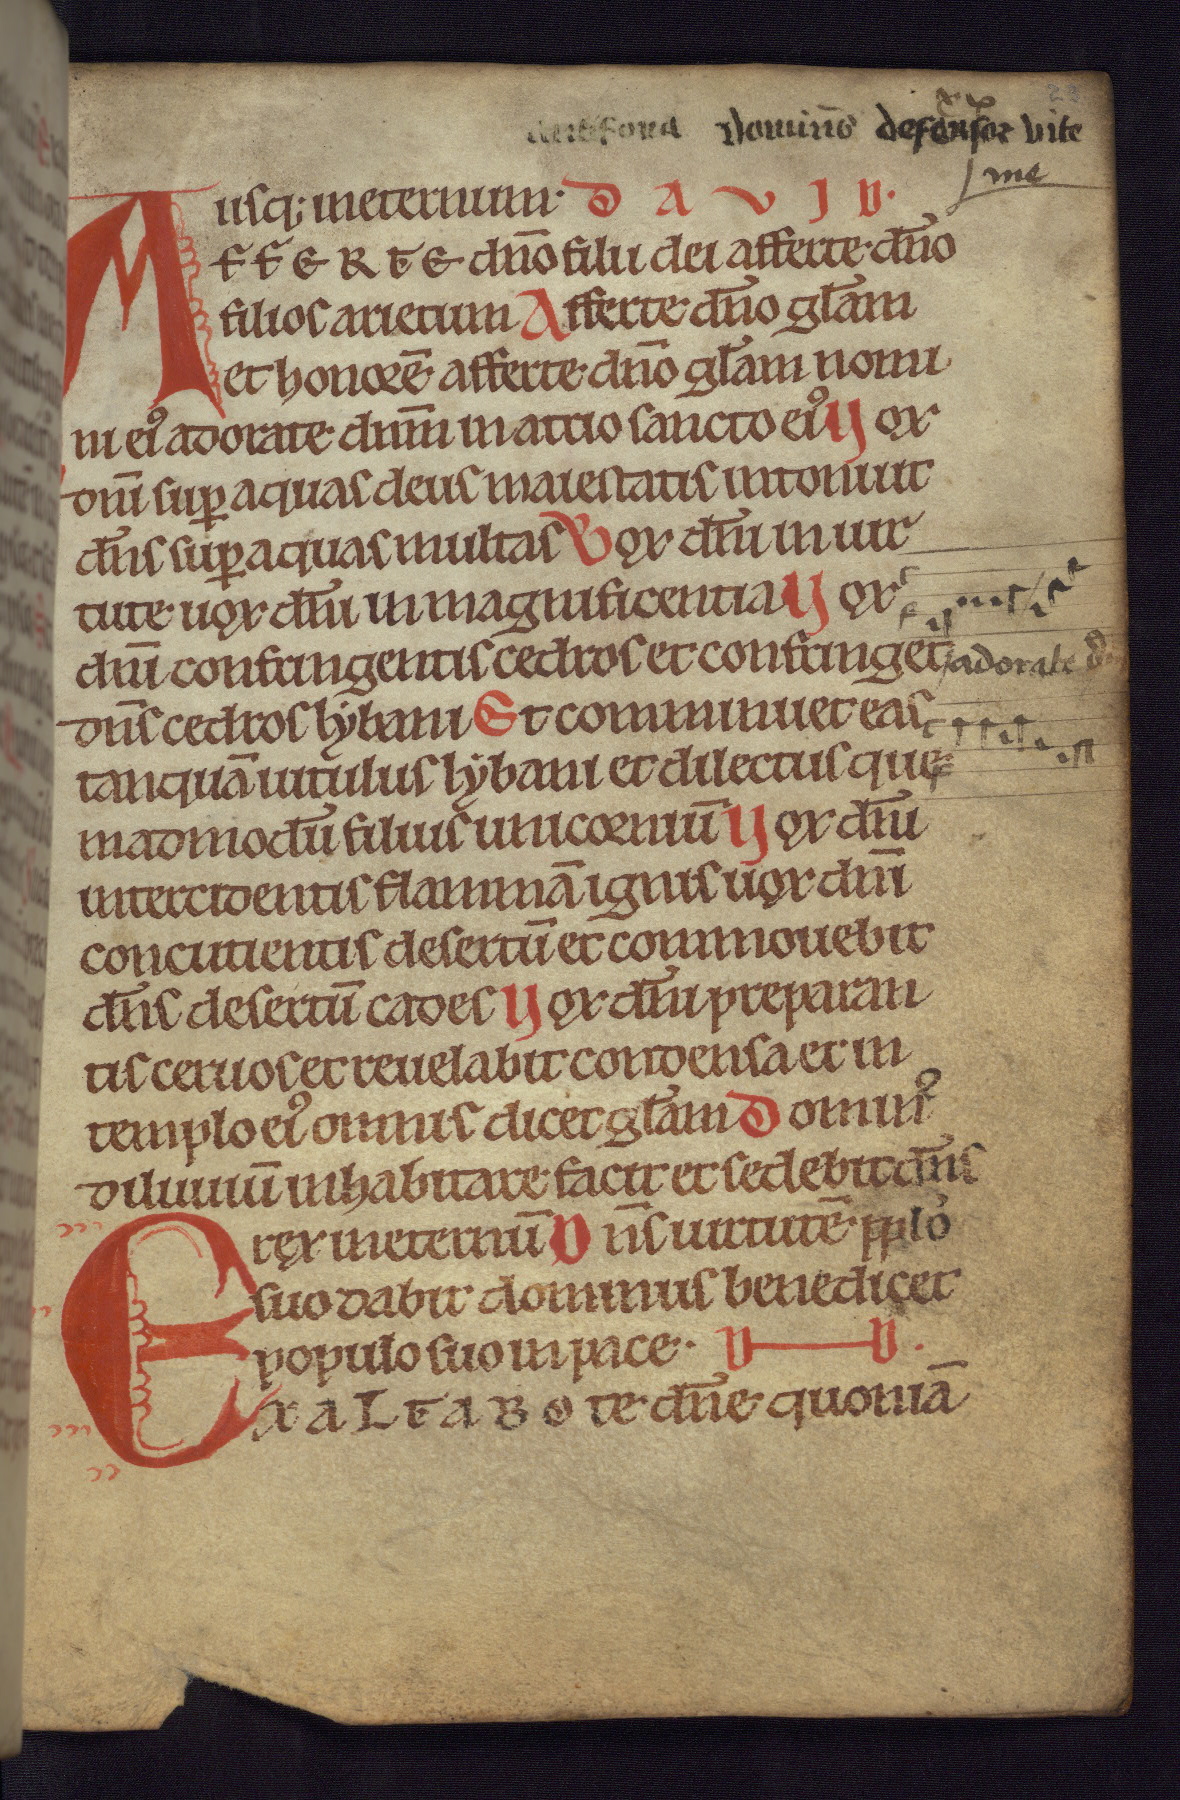 antifona Dominꝰ defensor vite
mee
usq; in eternum· D A V I D·
A F F E R T E dn̄o filii dei afferte dn̄o
filios arietum Afferte dn̄o gl̄am
et honorē afferte dn̄o gl̄am nomi
ni eiꝰ adorate dnm̄ in atrio sancto eiꝰ Vox
dnī suꝑ aquas deus maiestatis intonuit
dn̄s suꝑ aquas multas Vox dn̄i in uir
tute uox dn̄i in magnificentia Vox
dnī confringentis cedros et confringet
dn̄s cedros lẏbani Et comminuet eas
tanquā uitulus lẏbani et dilectus que
madmodū filius unicorniū Vox dn̄i
intercidentis flammā ignis uox dnī
concutientis desertū et commouebit
dn̄s desertū cades Vox dn̄i preparan
tis ceruos et reuelabit condensa et in
templo eiꝰ omnis dicet gl̄am Dominꝰ
diluuiū inhabitare facit et sedebit dn̄s
rex in eternū Dn̄s uirtutē pplo
suo dabit dominus benedicet
populo suo in pace· D D.
E X A L T A B O te dn̄e quoniā
adorate